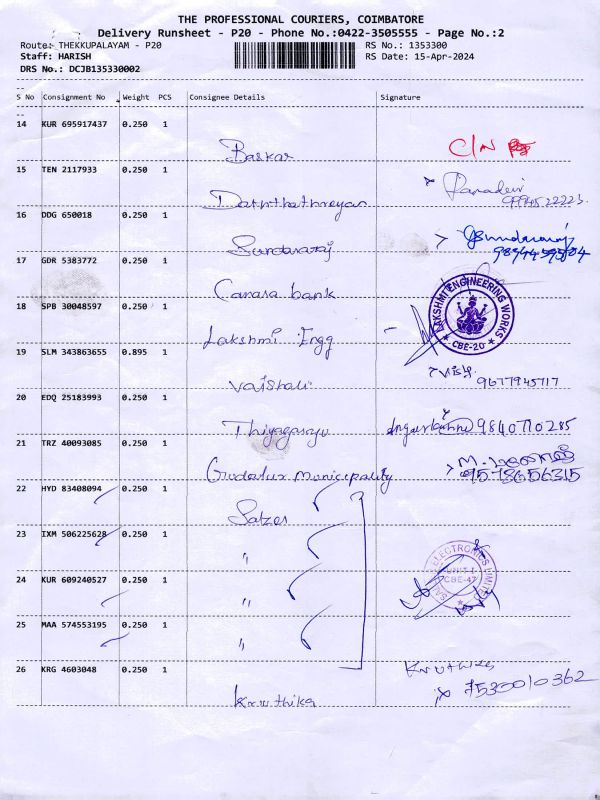 THE PROFESSIONAL COURIERS, COIMBATORE
Delivery Runsheet - P20 - Phone No.:0422-3505555 - Page No.:2
Route: THEKKUPALAYAM - P20 RS No.: 1353300
Staff: HARISH RS Date: 15-Apr-2024
DRS No.: DCJB135330002
S No Consignment No Weight PCS Consignee Details Signature
14 KUR 695917437 0.250 1
Baskar C/N
15 TEN 2117933 0.250 1
16 DDG 650018 0.250 1
Sundararaj
17 GDR 5383772 0.250 1
Canara bank
18 SPB 30048597 0.250 1
Lakshmi Engg
LAKSHMI ENGINEERING WORKS
CBE-20
19 SLM 343863655 0.895 1
Vaishali 9677945717
20 EDQ 25183993 0.250 1
Thiyagaraju 9840710285
21 TRZ 40093085 0.250 1
Gudalur Municipality 9578656315
22 HYD 83408094 0.250 1
Salzer
23 IXM 506225628 0.250 1
"
24 KUR 609240527 0.250 1
"
ELECTRONICS LIMITED
UNIT-I
CBE-47
25 MAA 574553195 0.250 1
"
26 KRG 4603048 0.250 1
Kruthika Kruthika
7530010362